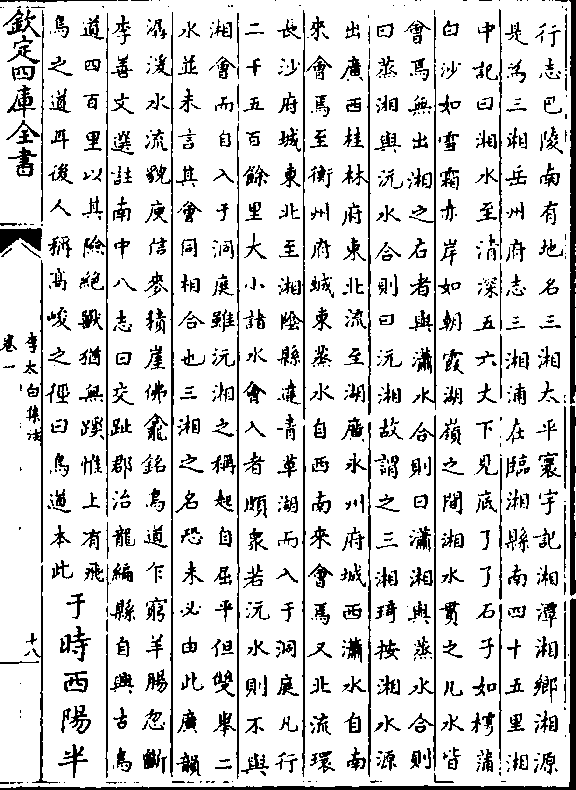 行志巴陵南有地名三湘太平寰宇記湘潭湘鄉湘源
是為三湘岳州府志三湘浦在臨湘縣南四十五里湘
中記曰湘水至清深五六丈下見底了了石子如樗蒲
白沙如雪霜赤岸如朝霞湖嶺之間湘水貫之凡水皆
會焉無出湘之右者與瀟水合則曰瀟湘與蒸水合則
曰蒸湘與沅水合則曰沅湘故謂之三湘琦按湘水源
出廣西桂林府東北流至湖廣永州府城西瀟水自南
來會焉至衡州府城東蒸水自西南來會焉又北流環
長沙府城東北至湘隂縣達青草湖而入于洞庭凡行
二千五百餘里大小諸水會入者頗衆若沅水則不與
湘會而自入于洞庭雖沅湘之稱起自屈平但雙舉二
水並未言其會同相合也三湘之名恐未必由此廣韻
潺湲水流貌庾信麥積崖佛龕銘鳥道乍窮羊腸忽斷
李善文選註南中八志曰交趾郡治龍編縣自興古鳥
道四百里以其險絶獸猶無蹊惟上有飛
鳥之道耳後人稱高峻之徑曰鳥道本此
于時西陽半
欽定四庫全書
李太白集注
卷一
十八